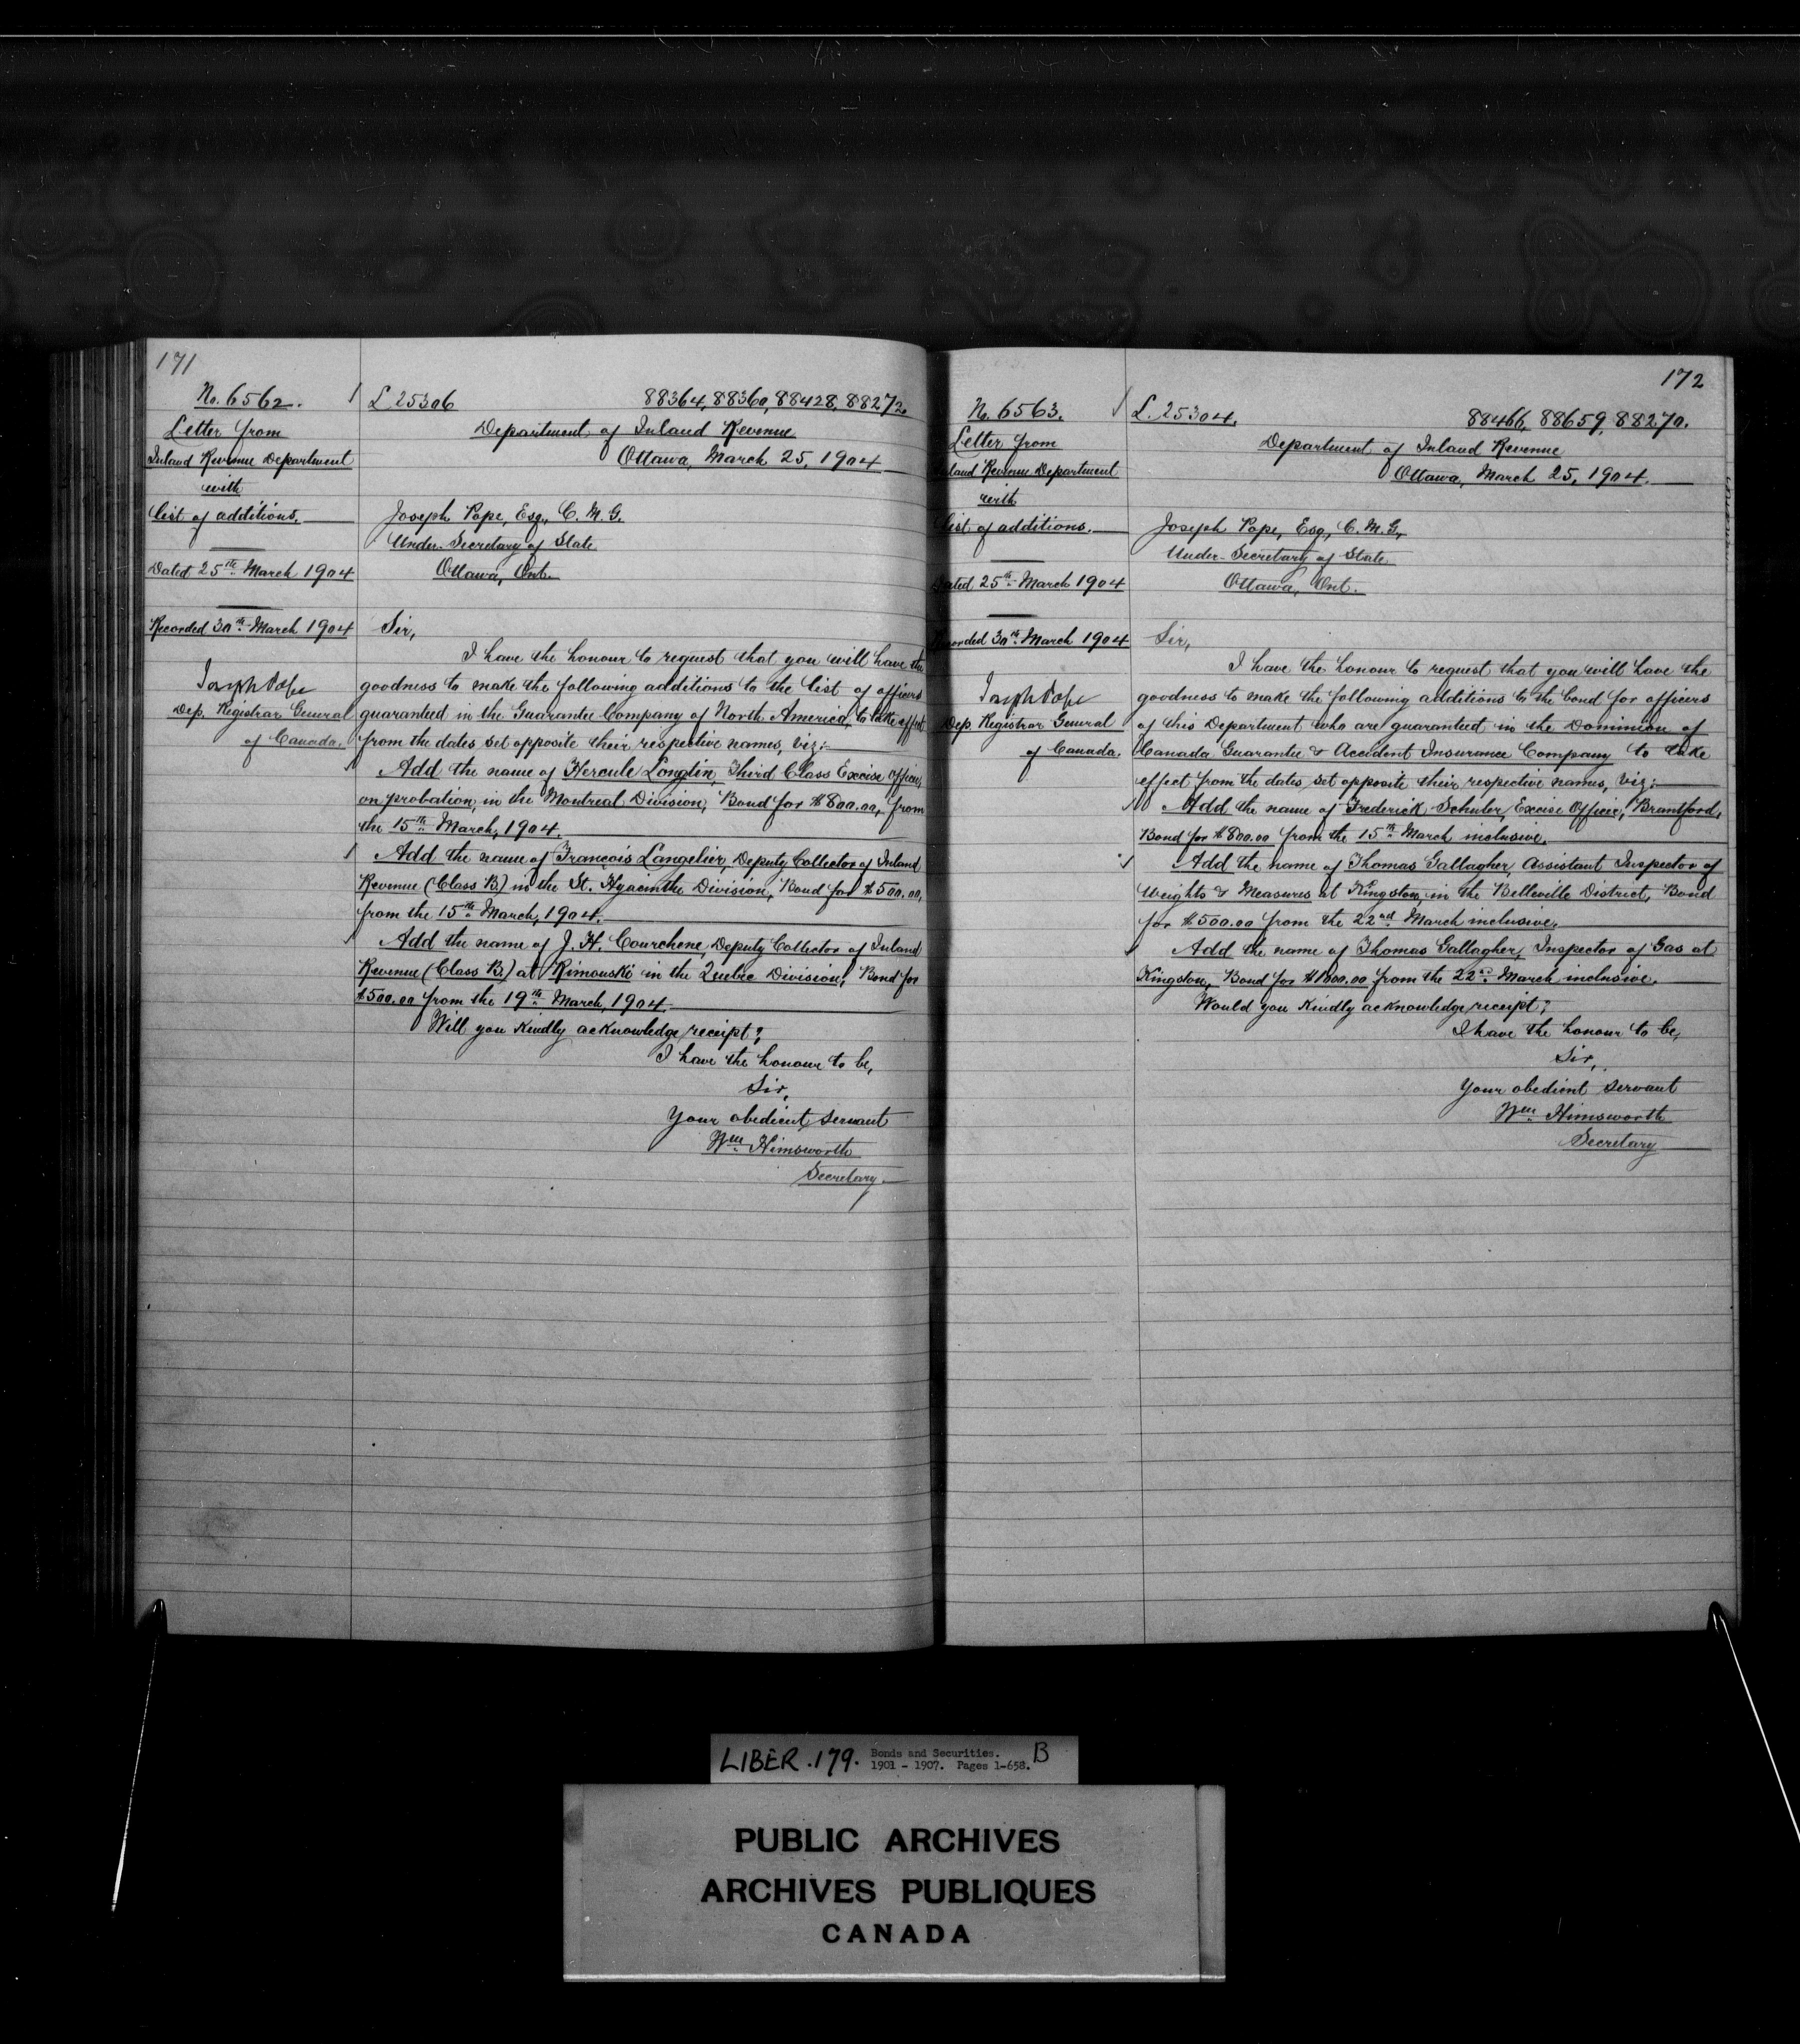 171
No. 6562.
Letter from
Inland Revenue Department
with
list of additions.
Dated 25th March 1904
Recorded 30th March 1904
Joseph Pope
Dep. Registrar General
of Canada.
L 25306 88364, 88360, 88428, 88272.
Department of Inland Revenue
Ottawa, March 25, 1904
Joseph Pope, Esq., C. M. G.
Under-Secretary of State
Ottawa, Ont.
Sir,
I have the honour to request that you will have the
goodness to make the following additions to the list of officers
guaranteed in the Guarantee Company of North America, to take effect
from the dates set opposite their respective names, viz:-
Add the name of Hercule Longtin, Third Class Excise Officer,
on probation, in the Montreal Division, Bond for $800.00, from
the 15th March, 1904.
Add the name of François Langelier, Deputy Collector of Inland
Revenue (Class B.) in the St. Hyacinthe Division, Bond for $500.00,
from the 15th March, 1904.
Add the name of J. H. Courchene, Deputy Collector of Inland
Revenue (Class B.) at Rimouski in the Quebec Division, Bond for
$500.00 from the 19th March, 1904.
Will you kindly acknowledge receipt?
I have the honour to be,
Sir,
Your obedient servant
Wm. Himsworth
Secretary.
172
No. 6563.
Letter from
Inland Revenue Department
with
list of additions.
Dated 25th March 1904
Recorded 30th March 1904
Joseph Pope
Dep. Registrar General
of Canada.
L. 25304. 88466, 88659, 88270.
Department of Inland Revenue
Ottawa, March 25, 1904.
Joseph Pope, Esq., C. M. G.,
Under-Secretary of State
Ottawa, Ont.
Sir,
I have the honour to request that you will have the
goodness to make the following additions to the bond for officers
of this Department who are guaranteed in the Dominion of
Canada Guarantee & Accident Insurance Company to take
effect from the dates set opposite their respective names, viz:-
Add the name of Frederick Schuler, Excise Officer, Brantford,
Bond for $800.00 from the 15th March inclusive.
Add the name of Thomas Gallagher, Assistant Inspector of
Weights & Measures at Kingston, in the Belleville District, Bond
for $500.00 from the 22nd March inclusive.
Add the name of Thomas Gallagher, Inspector of Gas at
Kingston, Bond for $1000.00 from the 22nd March inclusive.
Would you kindly acknowledge receipt?
I have the honour to be,
Sir,
Your obedient servant
Wm. Himsworth
Secretary
LIBER.179. Bonds and Securities. B
1901 - 1907. Pages 1-658.
PUBLIC ARCHIVES
ARCHIVES PUBLIQUES
CANADA